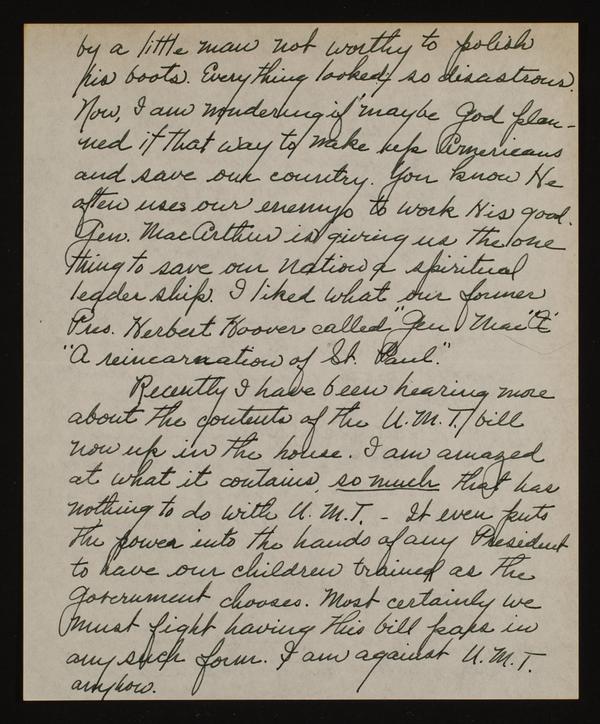 by a little man not worthy to polish
his boots. Everything looked, so disastrous.
Now, I am wondering if maybe God plan-
ned it that way to make us Americans
and save our country. You know He
often uses our enemys to work His good.
Gen. MacArthur is giving us the one
thing to save our nation a spiritual
leader ship. I liked what our former
Pres. Herbert Hoover called "Gen Mac "A"
"A reincarnation of St. Paul".
Recently I have been hearing more
about the contents of the U.M.T. bill
now up in the house. I am amazed
at what it contains, so much that has
nothing to do with U.M.T. - It even puts
the power into the hands of any President
to have our children trained as the
government chooses. Most certainly we
must fight having this bill pass in
any such form. I am against U.M.T.
anyhow.